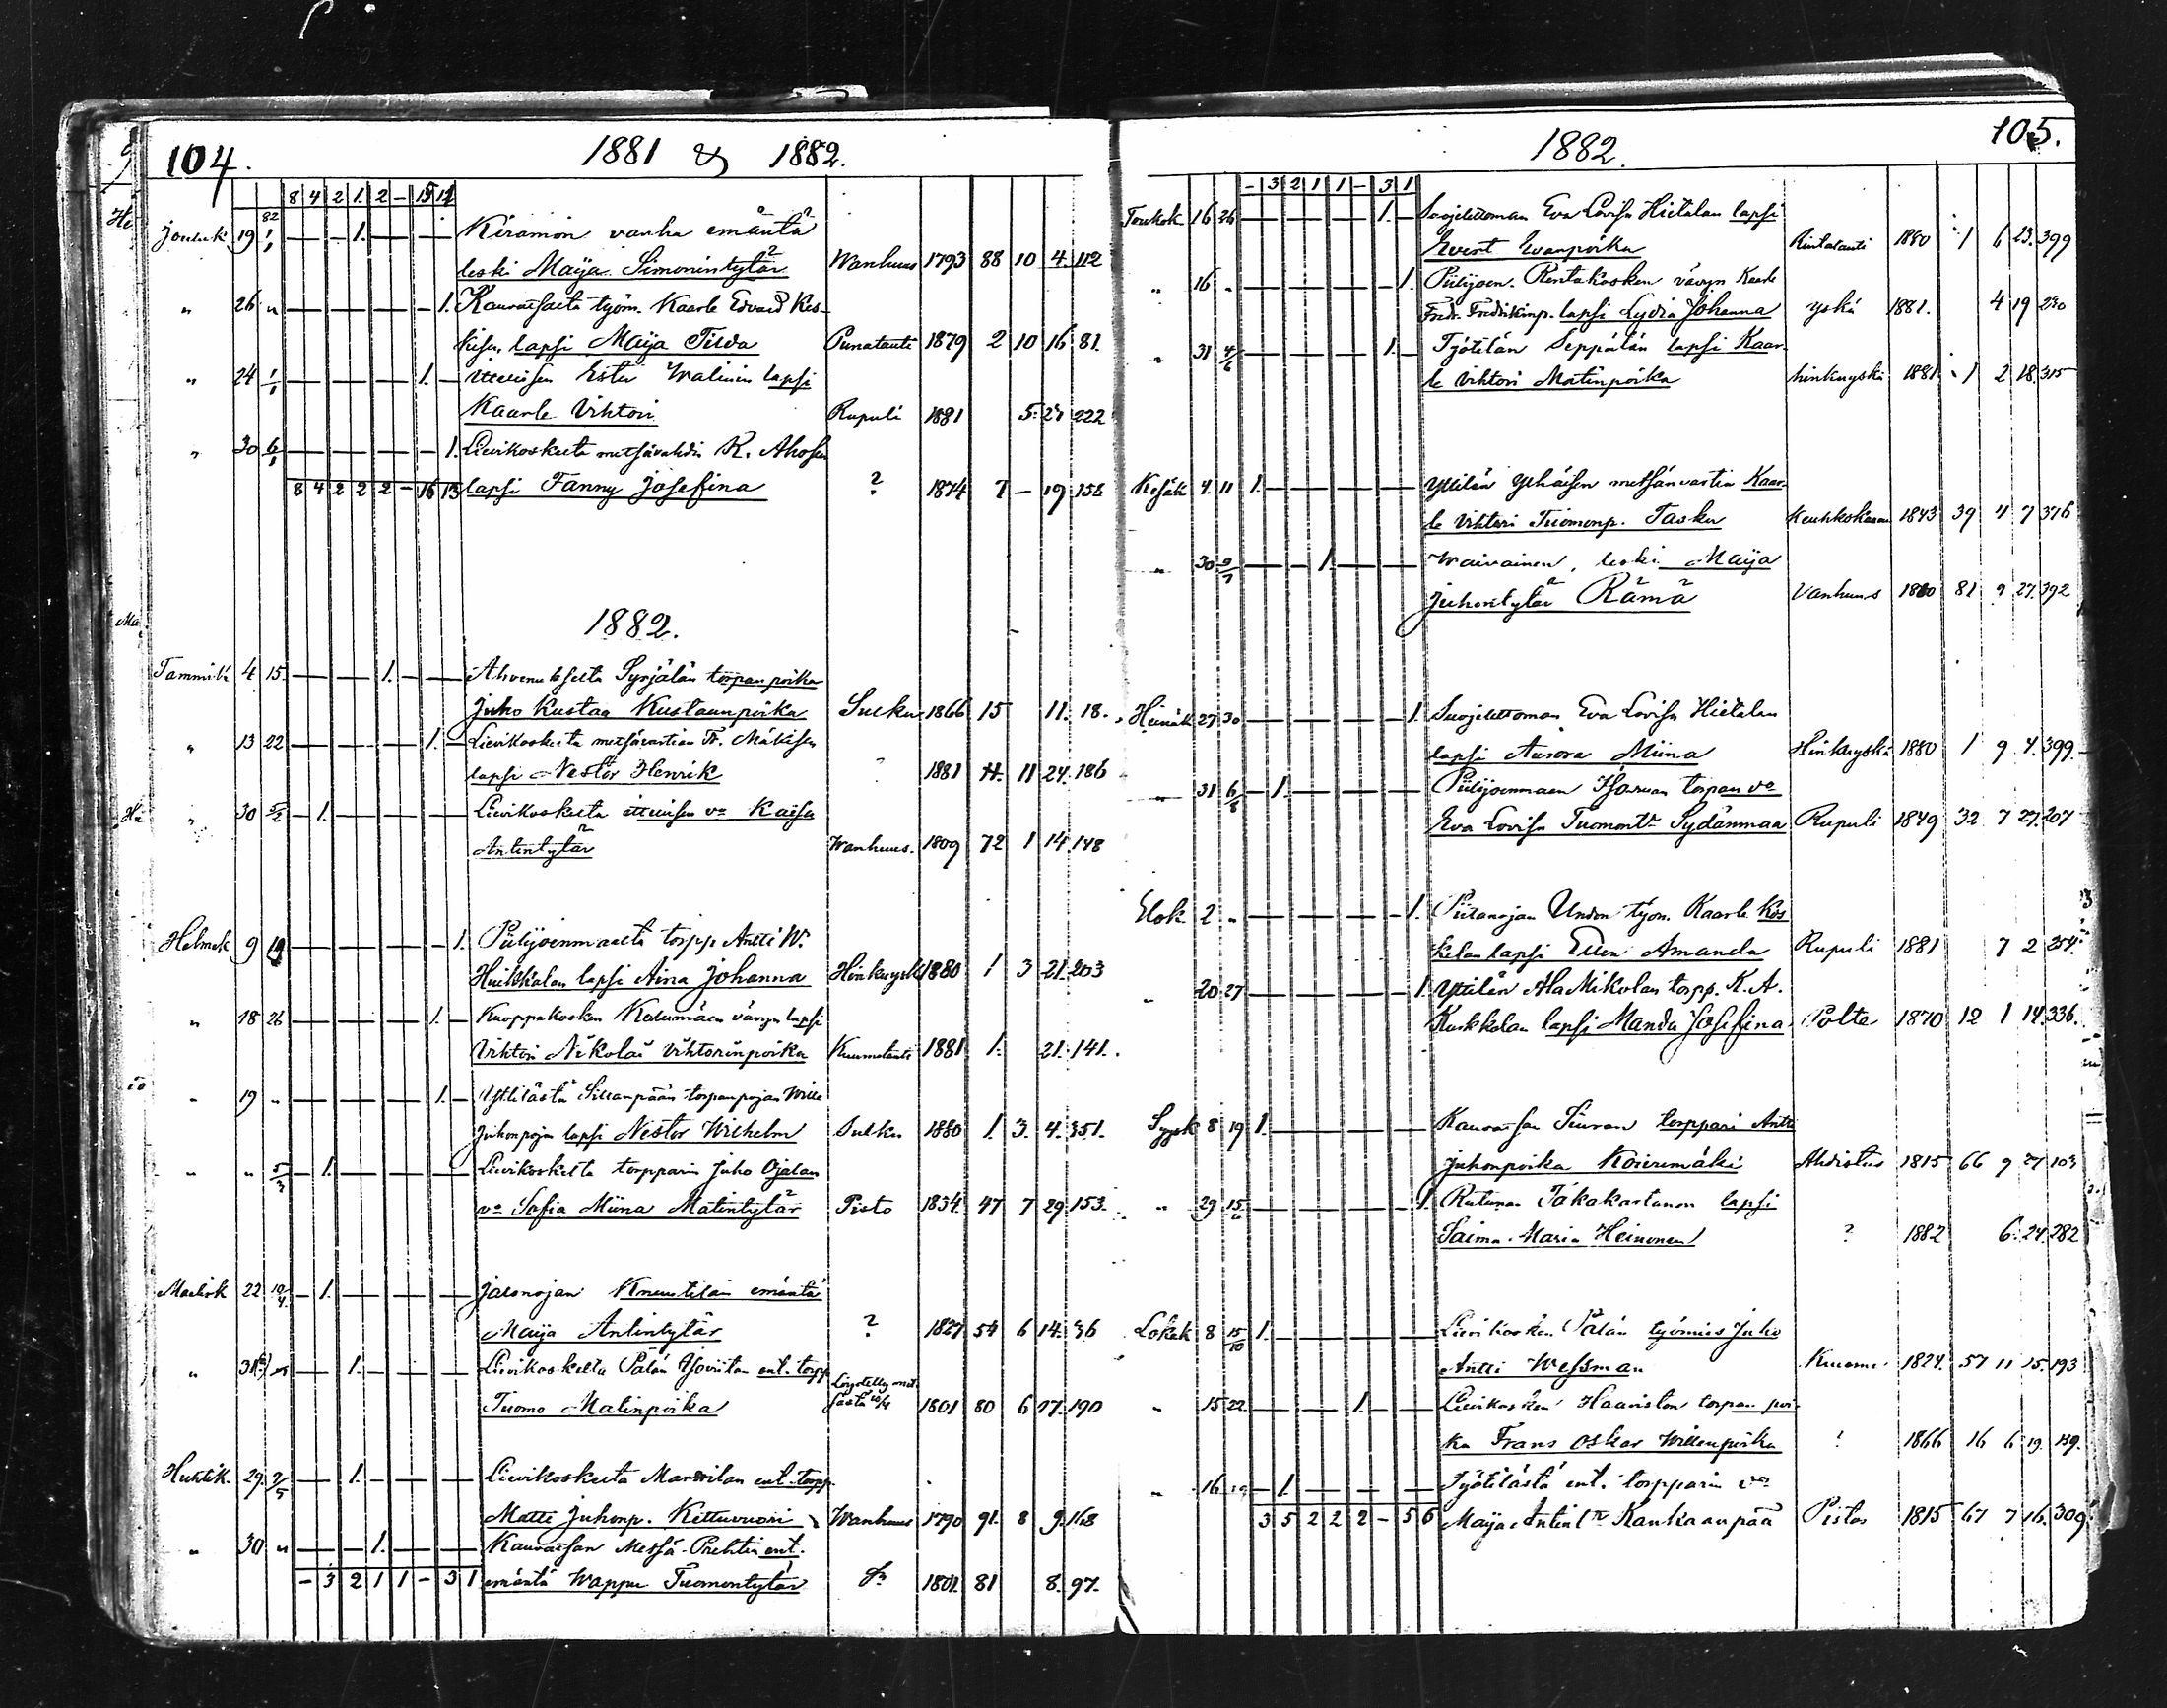 104.
1881 & 1882.
8 4 2 1. 2 – 15 12
82
Jouluk 19 1/1 — — — 1. — — — Kiramon vanha emäntä
leski Maija Simonintytär Wanhuus 1793 88 10 4. 112
" 26 " — — — — — — 1. Kauvatsalta työm. Kaarle Edvard Kes-
kisen lapsi Maija Tilda Punatauti 1879 2 10 16 81.
" 24 1/1 — — — — — 1. — Itellisen Ester Walinin lapsi
Kaarle Vihtori Rupuli 1881 5. 27 222
" 30 6/1 — — — — — — 1. Lievikoskelta metsävahdin K. Ahosen
8 4 2 2 2 – 16 13 lapsi Fanny Josefina ? 1874 7 – 19 158
1882.
Tammik 4 15. — — — 1. — — Ahvenukselta Syrjälän torpan poika
Juho Kustaa Kustaanpoika Sulku 1866 15 11. 18.
" 13 22 — — — — — 1. — Lievikoskelta metsävartian Fr. Mäkisen
lapsi Nestor Henrik ? 1881 11 24. 186
" 30 5/2 — 1. — — — — Lievikoskelta itellisen vo Kaisa
Antintytär Wanhuus. 1809 72 1 14. 148
Helmik 9 19 — — — — — — 1. Piilijoenmaalta torpp Antti W.
Heikkilän lapsi Aina Johanna Hinkuyskä 1880 1 3 21. 203
" 18 26 — — — — — 1. — Kuoppakosken Kalumäen vävyn lapsi
Vihtori Nikolai Vihtorinpoika Kuumetauti 1881 1. 21. 141.
" 19 " — — — — — 1. — Yttilästä Sillanpään torpanpojan Wille
Juhonpojan lapsi Nestor Wilhelm Sulku 1880 1. 3. 4. 351.
" " 5/3 — 1. — — — — Lievikoskelta torpparin Juho Ojalan
vo Sofia Miina Matintytär Pisto 1834. 47 7 29. 153.
Maalisk 22 10/4. — 1. — — — — Jalonojan Knuutilan emäntä
Maija Antintytär ? 1827 54 6 14. 36
" — — 1. — — — Lievikoskelta Pälän Isoviitan ent. torpp
Tuomo Matinpoika Löydetty met-
sästä 10/4 1801 80 6 17. 190
Huhtik. 29. 7/5 — — 1. — — — Lievikoskelta Marttilan ent. torpp.
Matti Juhonp. Kettuvuori Wanhuus 1790 91. 8 9. 168
" 30 " — — — 1. — — — Kauvatsan Messä-Prehtin ent.
– 3 2 1 1 – 3 1 emäntä Wappu Tuomontytär do 1801. 81 8. 97.
105.
1882.
– 3 2 1 1 – 3 1
Toukok 16 26 — — — — — — 1. — Suojelettoman Eva Lovisa Hietalan lapsi
Evert Evanpoika Rintatauti 1880 1 6 23. 399
" 16 " — — — — — — 1. Piilijoen Rentakosken vävyn Kaarle
Fredr. Fredrikinp. lapsi Lydia Johanna yskä 1881. 4 19 230
" 31 4/6 — — — — — 1. — Työtilän Seppälän lapsi Kaar-
le Vihtori Matinpoika hinkuyskä 1881 1 2 18. 315
Kesäk 4. 11 1. — — — — — — Yttilän Yliäisen metsänvartia Kaar-
le Vihtori Tuomonp. Tasku Keuhkokuume 1843 39 4 7 376
" 30 9/7 — — — 1. — — — Waivainen, leski Maija
Juhontytär Rämä Vanhuus 1800 81 9 27. 392
Heinäk 27 30 — — — — — — 1. Suojelettoman Eva Lovisa Hietalan
lapsi Aurora Miina Hinkuyskä 1880 1 9 4. 399.
" 31 6/8 — 1. — — — — — Piilijoenmaan torpan vo
Eva Lovisa Tuomontr Sydänmaa Rupuli 1849 32 7 27. 207
Elok. 2 " — — — — — — 1. Piilanojan Undon työm. Kaarle Kos
kelan lapsi Ellen Amanda Rupuli 1881 7 2 254.
" 20 27 — — — — — — 1. Yttilän Ala Mikolan torpp. K. A.
Kuikkolan lapsi Manda Josefina Polte 1870 12 1 14. 336.
Syysk 8 19 1. — — — — — — Kauvatsan Tiuran torppari Antti
Juhonpoika Koivumäki Ahdistus 1815 66 9 27 103
" 29 15/ — — — — — — 1. Takakartanon lapsi
Saima Maria Heinonen ? 1882 6. 24. 282
Lokak 8 15/10 1. — — — — — — Lievikosken Pälän työmies Juho
Antti Wessman Kuume 1824. 57 11 15. 193
" 15 22 — — — — 1. — — Lievikosken Haaviston torpan poi-
ka Frans Oskar Willenpoika ! 1866 16 6 19. 159.
" 16 — 1 — — — — Työtilästä ent. torpparin vo
3 5 2 2 2 – 5 6 Maija Antintr Kankaanpää Pistos 1815 67 7 16. 309